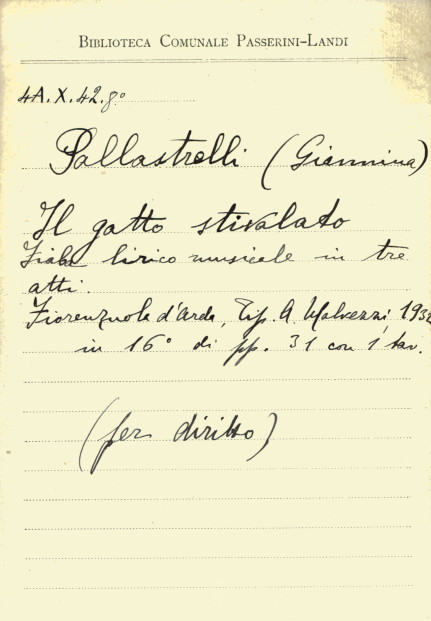 BIBLIOTECA COMUNALE PASSERINI-LANDI
4A.X.42.8°
Pallastrelli (Giannina)
Il gatto stivalato
Fiaba lirico musicale in tre
atti.
Fiorenzuola d'Arda, Tip. A. Malvezzi
in 16° di pp. 31 con 1 tav.
(per diritto)